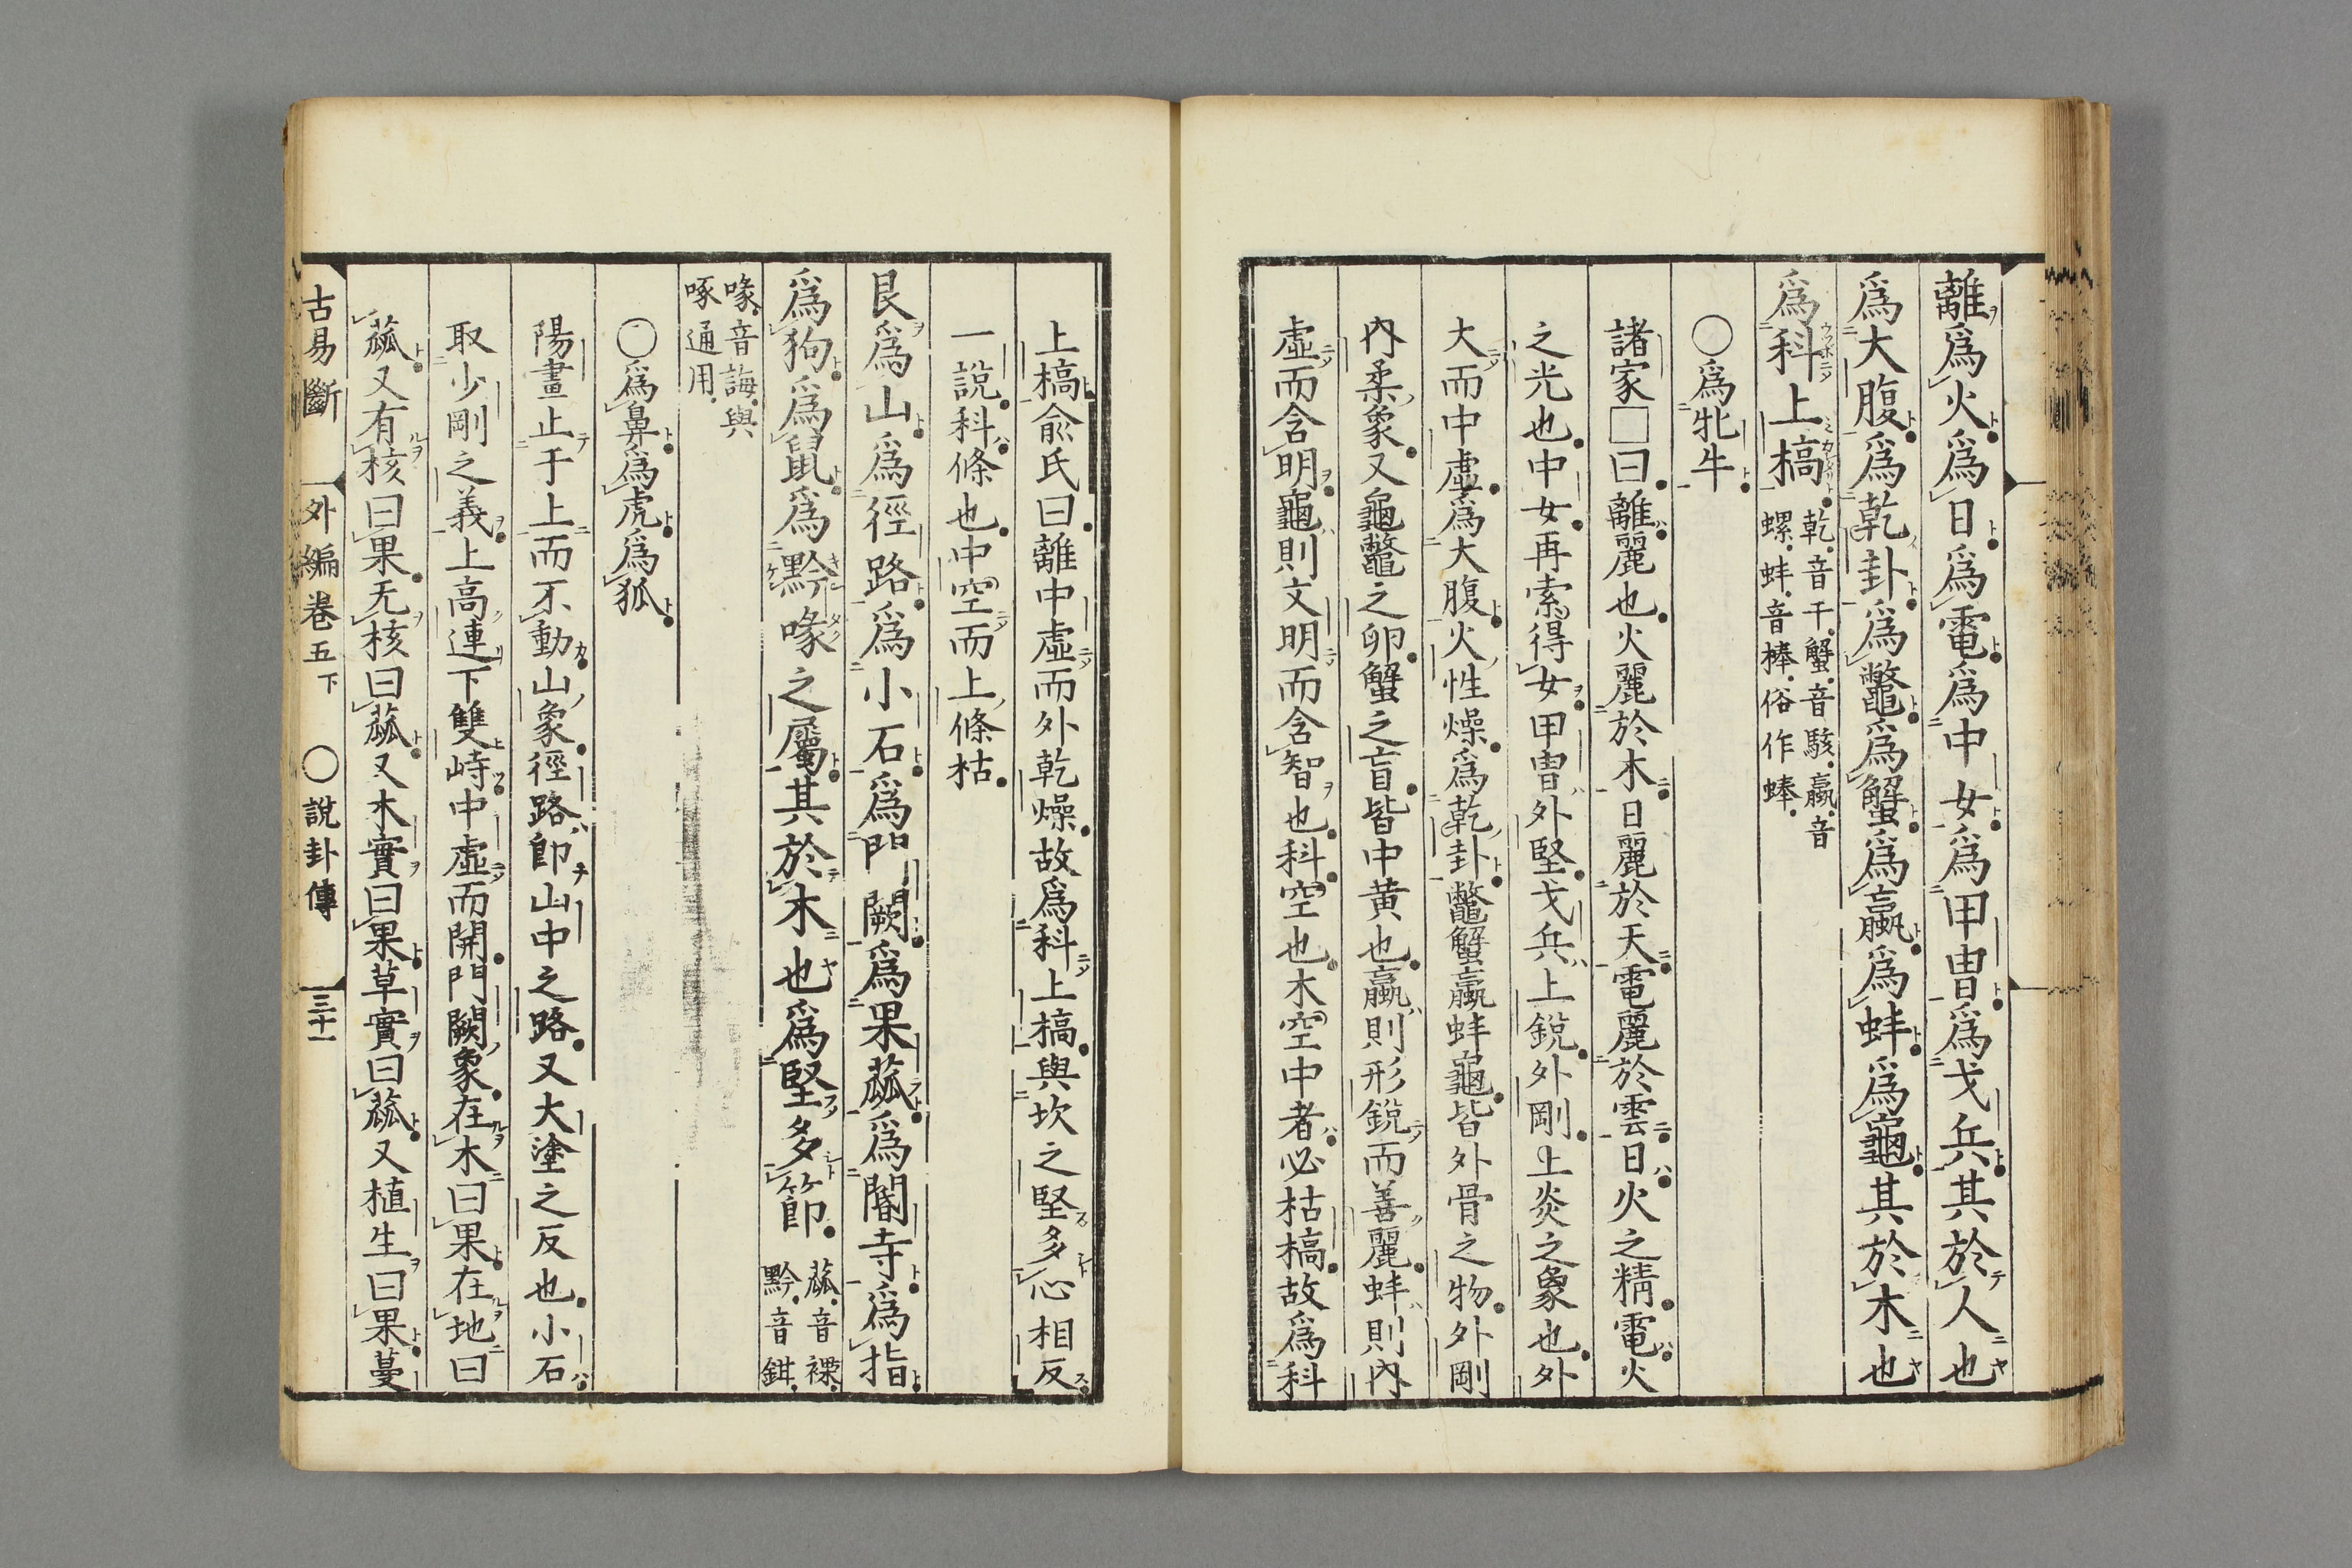 離爲火爲日爲電爲中女爲甲冑爲戈兵其於人也
爲大腹爲乾卦爲鼈爲蟹爲蠃爲蚌爲龜其於木也
爲科上槁乾音干蟹音駭蠃音
螺蚌音棒俗作蜯
○爲牝牛
諸家□曰離麗也火麗於木日麗於天電麗於雲日火之精電火
之光也中女再索得女甲冑外堅戈兵上銳外剛上炎之象也外
大而中虛爲大腹火性燥爲乾卦鼈蟹蠃蚌龜皆外骨之物外剛
內柔象又龜鼈之卵蟹之肓皆中黄也蠃則形銳而善麗蚌則內
虛而含明龜則文明而含智也科空也木空中者必枯槁故爲科
上槁俞氏曰離中虛而外乾燥故爲科上槁與坎之堅多心相反
一說科條也中空而上條枯
艮爲山爲徑路爲小石爲門闕爲果蓏爲閽寺爲指
爲狗爲鼠爲黔喙之屬其於木也爲堅多節蓏音裸
黔音鉗
喙音誨與
啄通用
○爲鼻爲虎爲狐
陽畫止于上而不動山象徑路卽山中之路又大塗之反也小石
取少剛之義上高連下雙峙中虛而開門闕象在木曰果在地曰
蓏又有核曰果无核曰蓏又木實曰果草實曰蓏又植生曰果蔓
古易斷 外編卷五下 ○說卦傳 三十一